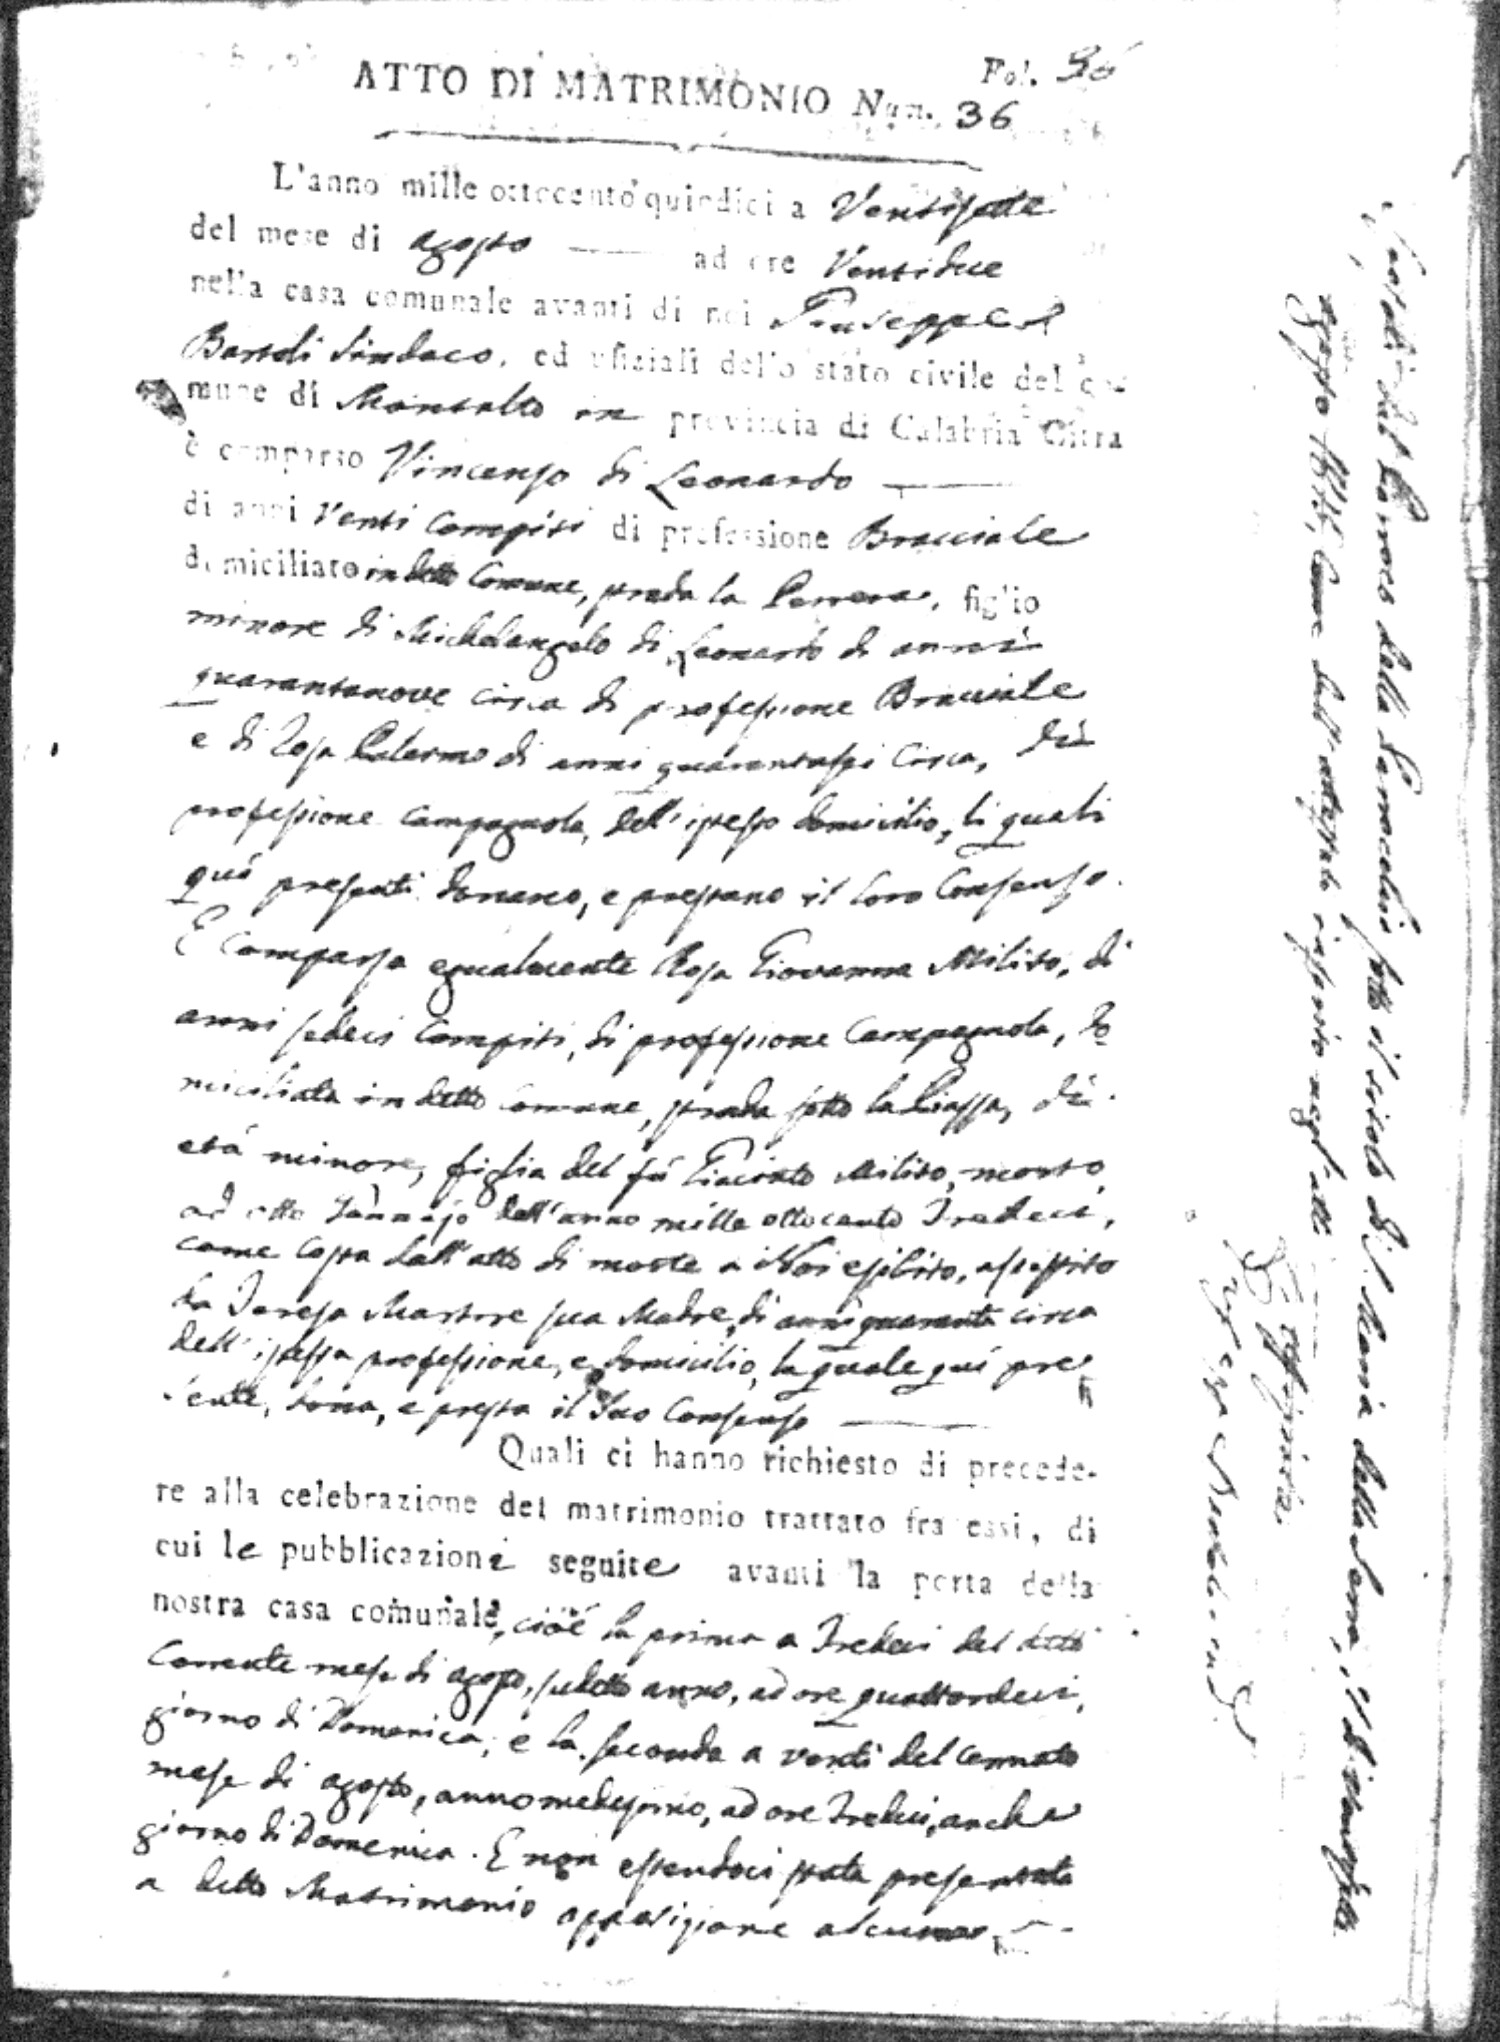 Fol. 36
ATTO DI MATRIMONIO Num. 36
L'anno mille ottocento quindici a Ventisette
del mese di agosto ad ore Ventidue
nella casa comunale avanti di noi Giuseppe
Bartoli Sindaco, ed ufiziali dello stato civile del co-
mune di Montalto in provincia di Calabria Citra
è comparso Vincenzo di Leonardo
di anni Venti Compiti di professione Bracciale
domiciliato in detto Comune, strada la Perrera, figlio
minore di Michelangelo di Leonardo di anni
quarantanove circa di professione Bracciale
e di Rosa Palermo di anni quarantasei Circa, di
professione Campagnola, dell'istesso domicilio, li quali
quì presenti donano, e prestano il loro Consenso.
E Comparsa egualmente Rosa Giovanna Milito, di
anni sedeci Compiti, di professione Campagnola, do
miciliata in detto Comune, strada sotto la Piazza, di
età minore, figlia del fù Giacinto Milito, morto
ad otto Jannajo dell'anno mille ottocento Tredeci,
come costa dall'atto di morte a Noi esibito, assistito
da Teresa Martire sua Madre, di anni quaranta circa
dell'istessa professione, e domicilio, la quale quì pre
sente, dona, e presta il suo Consenso
Quali ci hanno richiesto di precede-
re alla celebrazione del matrimonio trattato fra essi, di
cui le pubblicazioni seguite avanti la porta della
nostra casa comunale, cioè la prima a Tredeci del detto
Corrente mese di agosto, sudetto anno, ad ore quattordeci,
giorno di Domenica, e la seconda a venti del cennato
mese di agosto, anno medesimo, ad ore Tredeci, anche
giorno di Domenica. E non essendoci stata presentata
a detto Matrimonio opposizione alcuna
della Parrocchia sotto il titolo di S. Maria della Serra, il dì ventisette
agosto 1815, Come dall'attestato inserito negl'atti